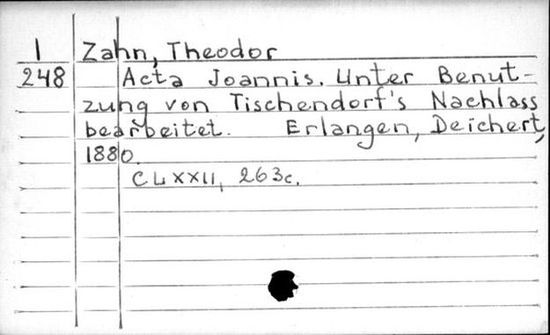 I Zahn, Theodor
248 Acta Joannis. Unter Benut-
zung von Tischendorf's Nachlass
bearbeitet. Erlangen, Deichert,
1880.
CLXXII, 263c.